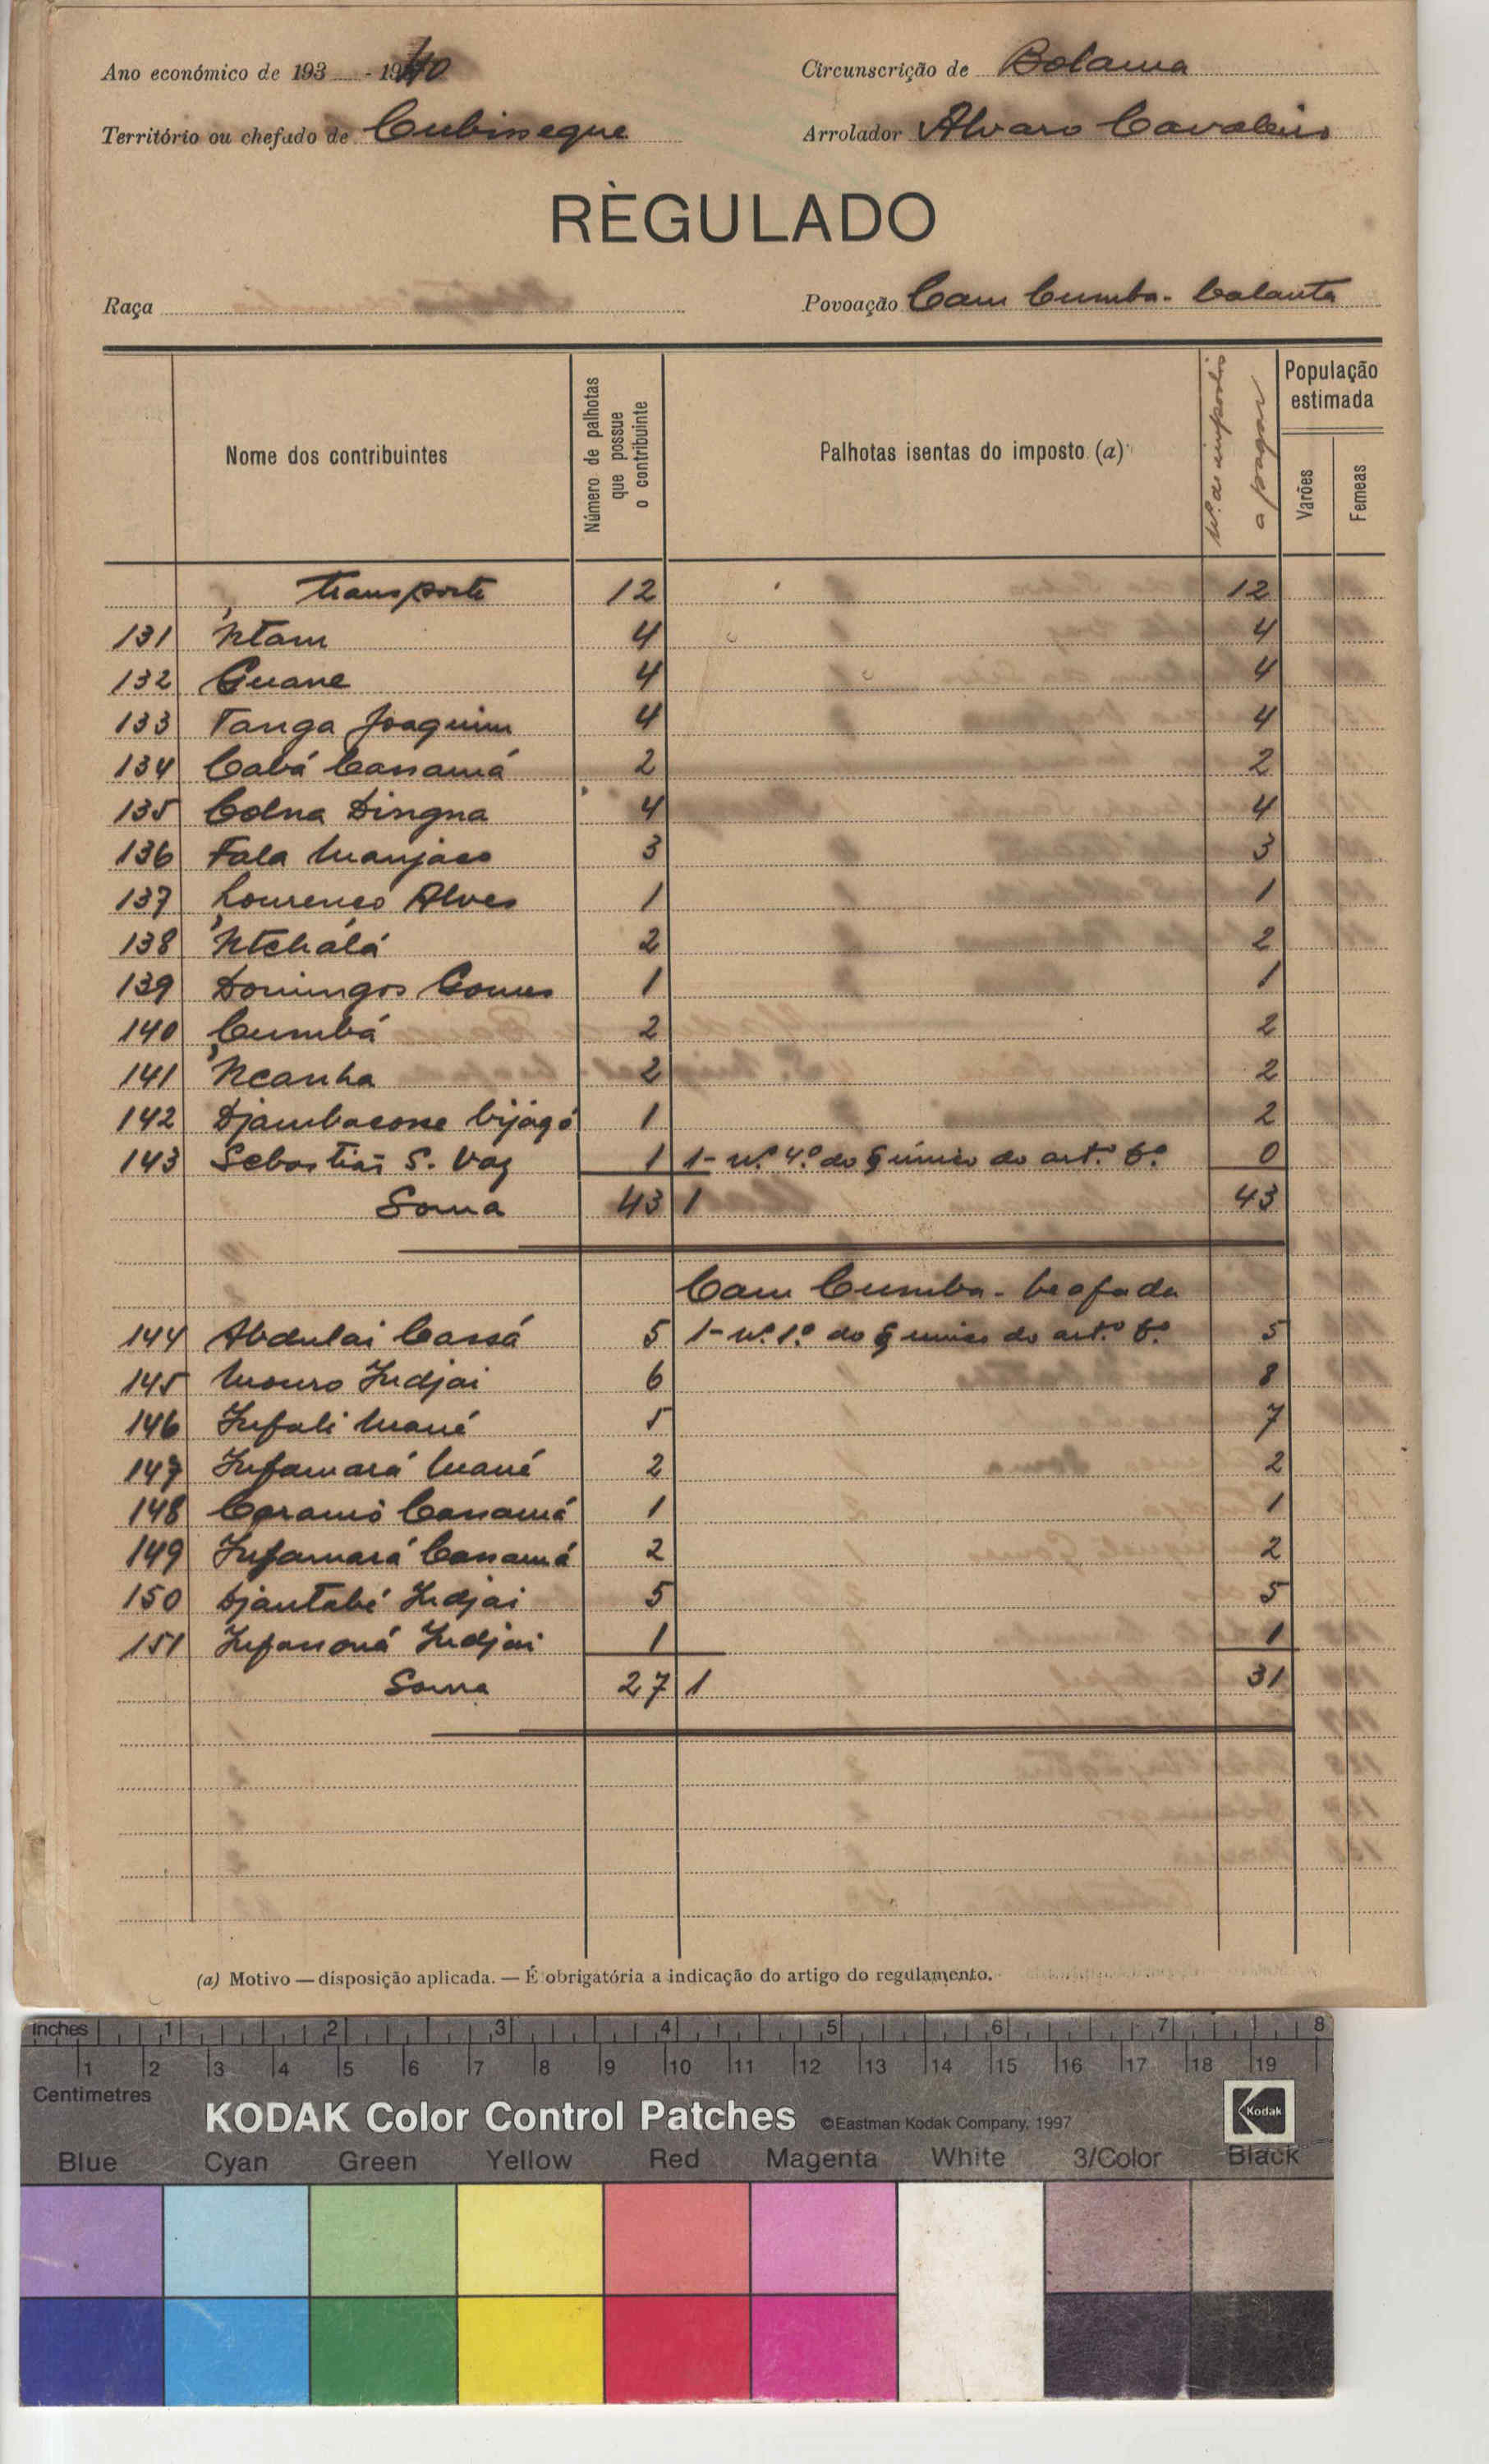 Ano económico de 193 - 1940 Circunscrição de Bolama
Território ou chefado de Cubisseque Arrolador Alvaro Cavaleiro
RÈGULADO
Raça Povoação Cam Cumba - balanta
Nome dos contribuintes Número de palhotas que possue o contribuinte Palhotas isentas do imposto (a) Nº de impostos a pagar População estimada Varões Femeas
Transporte 12 12
131 'Ntam 4 4
132 Guane 4 4
133 Tanga Joaquim 4 4
134 Cabá Cassamá 2 2
135 Colna Dingna 4 4
136 Fala Manjaco 3 3
137 Lourenço Alves 1 1
138 'Ntchálá 2 2
139 Domingos Gomes 1 1
140 Cumbá 2 2
141 'Ncanha 2 2
142 Djambacosse bijagó 1 2
143 Sebastião S. Vaz 1 1- nº 4º do § único do artº 6º 0
Soma 43 1 43
Cam Cumba - beafada
144 Abdulai Cassá 5 1- nº 1º do § único do artº 6º 5
145 Mouro Indjai 6 8
146 Infali Mané 5 7
147 Infamará Mané 2 2
148 Caramó Cassamá 1 1
149 Infamará Cassamá 2 2
150 Djantabé Indjai 5 5
151 Infansoná Indjai 1 1
Soma 27 1 31
(a) Motivo — disposição aplicada. — É obrigatória a indicação do artigo do regulamento.
inches 1 2 3 4 5 6 7 8
1 2 3 4 5 6 7 8 9 10 11 12 13 14 15 16 17 18 19
Centimetres
KODAK Color Control Patches ©Eastman Kodak Company, 1997 Kodak
Blue Cyan Green Yellow Red Magenta White 3/Color Black